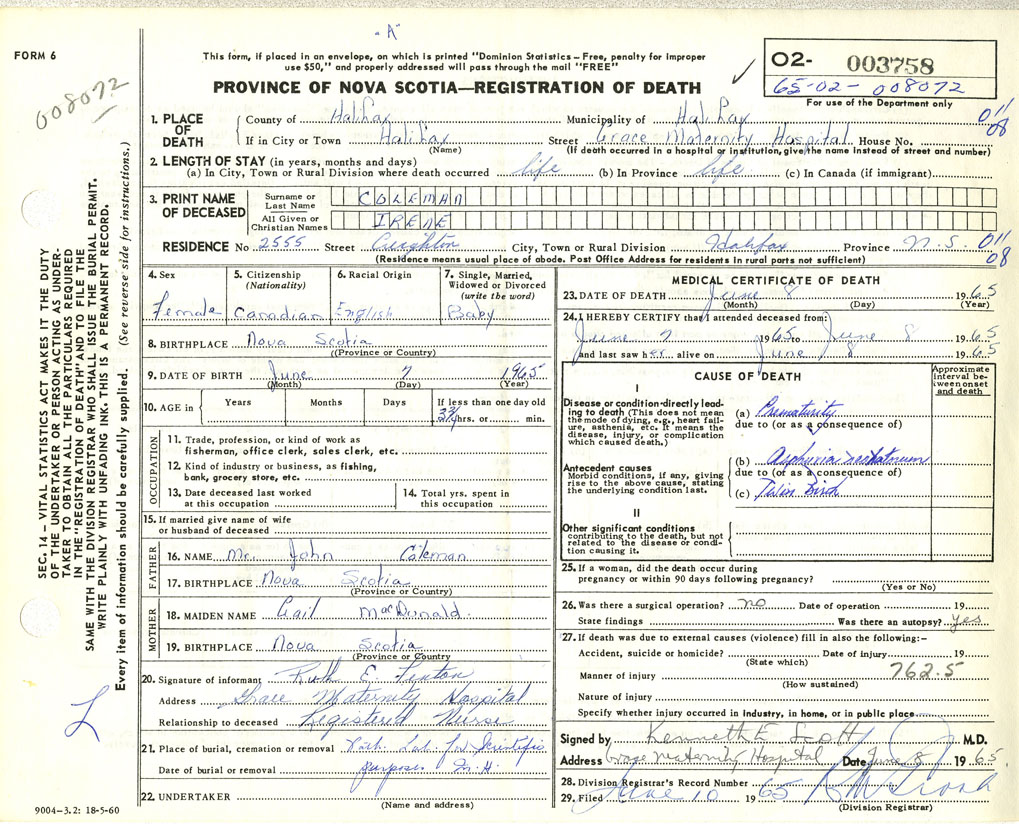 "A"
FORM 6
008072
This form, if placed in an envelope, on which is printed "Dominion Statistics – Free, penalty for improper
use $50," and properly addressed will pass through the mail "FREE"
PROVINCE OF NOVA SCOTIA—REGISTRATION OF DEATH
✓
O2- 003758
65-02-008072
For use of the Department only
1. PLACE OF DEATH
County of Halifax Municipality of Halifax 011
If in City or Town Halifax Street Grace Maternity Hospital House No. 08
(Name) (If death occurred in a hospital or institution, give the name instead of street and number)
2. LENGTH OF STAY (in years, months and days)
(a) In City, Town or Rural Division where death occurred life (b) In Province life (c) In Canada (if immigrant)
3. PRINT NAME OF DECEASED
Surname or Last Name COLEMAN
All Given or Christian Names IRENE
RESIDENCE No 2555 Street Creighton City, Town or Rural Division Halifax Province N.S. 011
(Residence means usual place of abode. Post Office Address for residents in rural parts not sufficient) 08
4. Sex Female
5. Citizenship (Nationality) Canadian
6. Racial Origin English
7. Single, Married, Widowed or Divorced (write the word) Baby
8. BIRTHPLACE Nova Scotia
(Province or Country)
9. DATE OF BIRTH June 7 1965
(Month) (Day) (Year)
10. AGE in Years Months Days If less than one day old
hrs. or min.
OCCUPATION
11. Trade, profession, or kind of work as
fisherman, office clerk, sales clerk, etc.
12. Kind of industry or business, as fishing,
bank, grocery store, etc.
13. Date deceased last worked
at this occupation
14. Total yrs. spent in
this occupation
15. If married give name of wife
or husband of deceased
FATHER
16. NAME Mr. John Coleman
17. BIRTHPLACE Nova Scotia
(Province or Country)
MOTHER
18. MAIDEN NAME Gail MacDonald
19. BIRTHPLACE Nova Scotia
(Province or Country
20. Signature of informant Ruth E. Fenton
Address Grace Maternity Hospital
Relationship to deceased Registered Nurse
21. Place of burial, cremation or removal Path. Lab. for Scientific
Date of burial or removal purposes
22. UNDERTAKER
(Name and address)
MEDICAL CERTIFICATE OF DEATH
23. DATE OF DEATH June 8 1965
(Month) (Day) (Year)
24. I HEREBY CERTIFY that I attended deceased from:
June 7 1965 to June 8 1965
and last saw her alive on June 8 1965
CAUSE OF DEATH
Approximate interval between onset and death
I
Disease or condition directly leading to death (This does not mean the mode of dying, e.g., heart failure, asthenia, etc. It means the disease, injury, or complication which caused death.)
(a) Prematurity
due to (or as a consequence of)
Antecedent causes
Morbid conditions, if any, giving rise to the above cause, stating the underlying condition last.
(b) Asphyxia neonatorum
due to (or as a consequence of)
(c) Twin Birth
II
Other significant conditions
contributing to the death, but not related to the disease or condition causing it.
25. If a woman, did the death occur during
pregnancy or within 90 days following pregnancy?
(Yes or No)
26. Was there a surgical operation? no Date of operation 19
State findings Was there an autopsy? yes
27. If death was due to external causes (violence) fill in also the following:–
Accident, suicide or homicide? Date of injury 19
(State which)
Manner of injury 762.5
(How sustained)
Nature of injury
Specify whether injury occurred in industry, in home, or in public place
Signed by Kenneth E Scott M.D.
Address Grace Maternity Hospital Date June 8 1965
28. Division Registrar's Record Number
29. Filed June 10 1965
(Division Registrar)
SEC. 14 – VITAL STATISTICS ACT MAKES IT THE DUTY
OF THE UNDERTAKER OR PERSON ACTING AS UNDER-
TAKER TO OBTAIN ALL THE PARTICULARS REQUIRED
IN THE "REGISTRATION OF DEATH" AND TO FILE THE
SAME WITH THE DIVISION REGISTRAR WHO SHALL ISSUE THE BURIAL PERMIT.
WRITE PLAINLY WITH UNFADING INK. THIS IS A PERMANENT RECORD.
Every item of information should be carefully supplied. (See reverse side for instructions.)
L
9004-3.2: 18-5-60